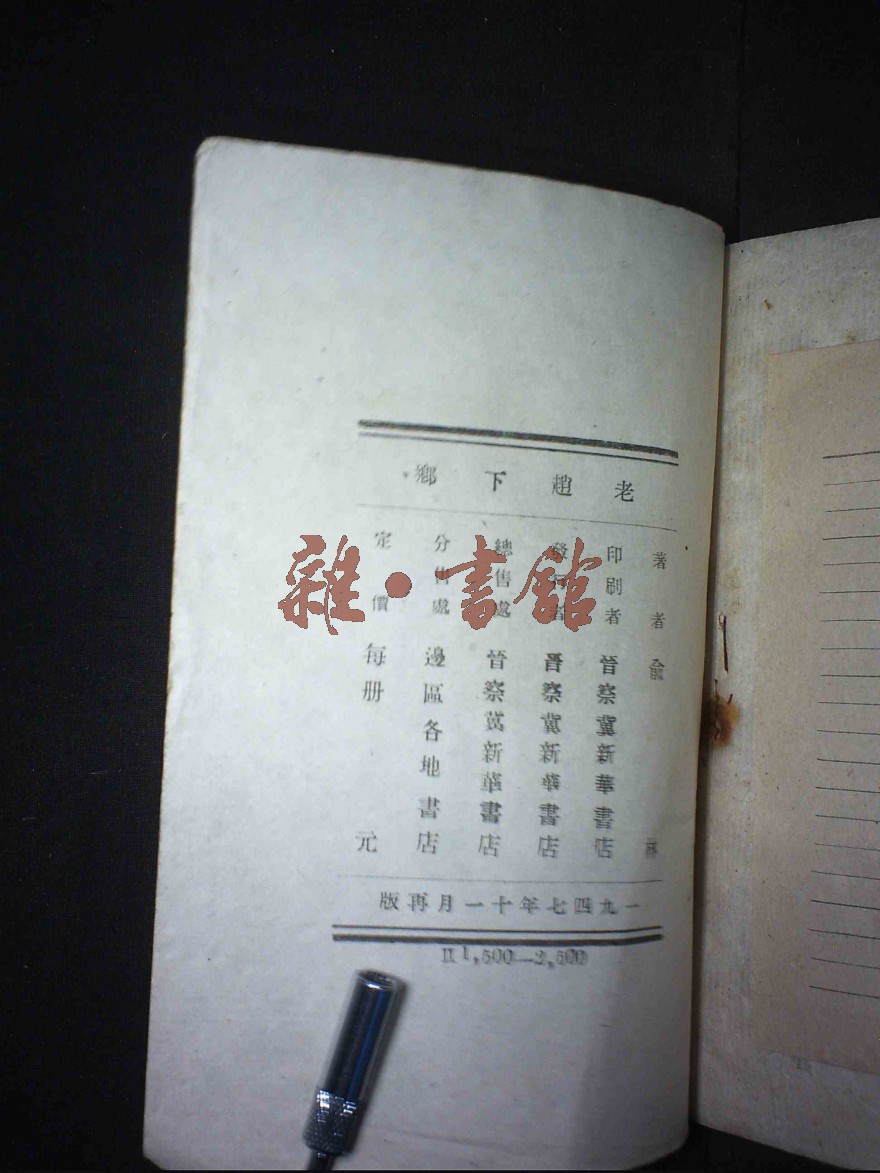 老趙下鄉
著者 俞林
印刷者 晉察冀新華書店
發行者 晉察冀新華書店
總售處 晉察冀新華書店
分售處 邊區各地書店
定價 每册 元
一九四七年十一月再版
II 1,500—3,500
雜·書館